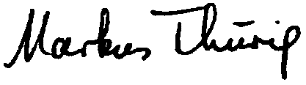 Markus Thürig